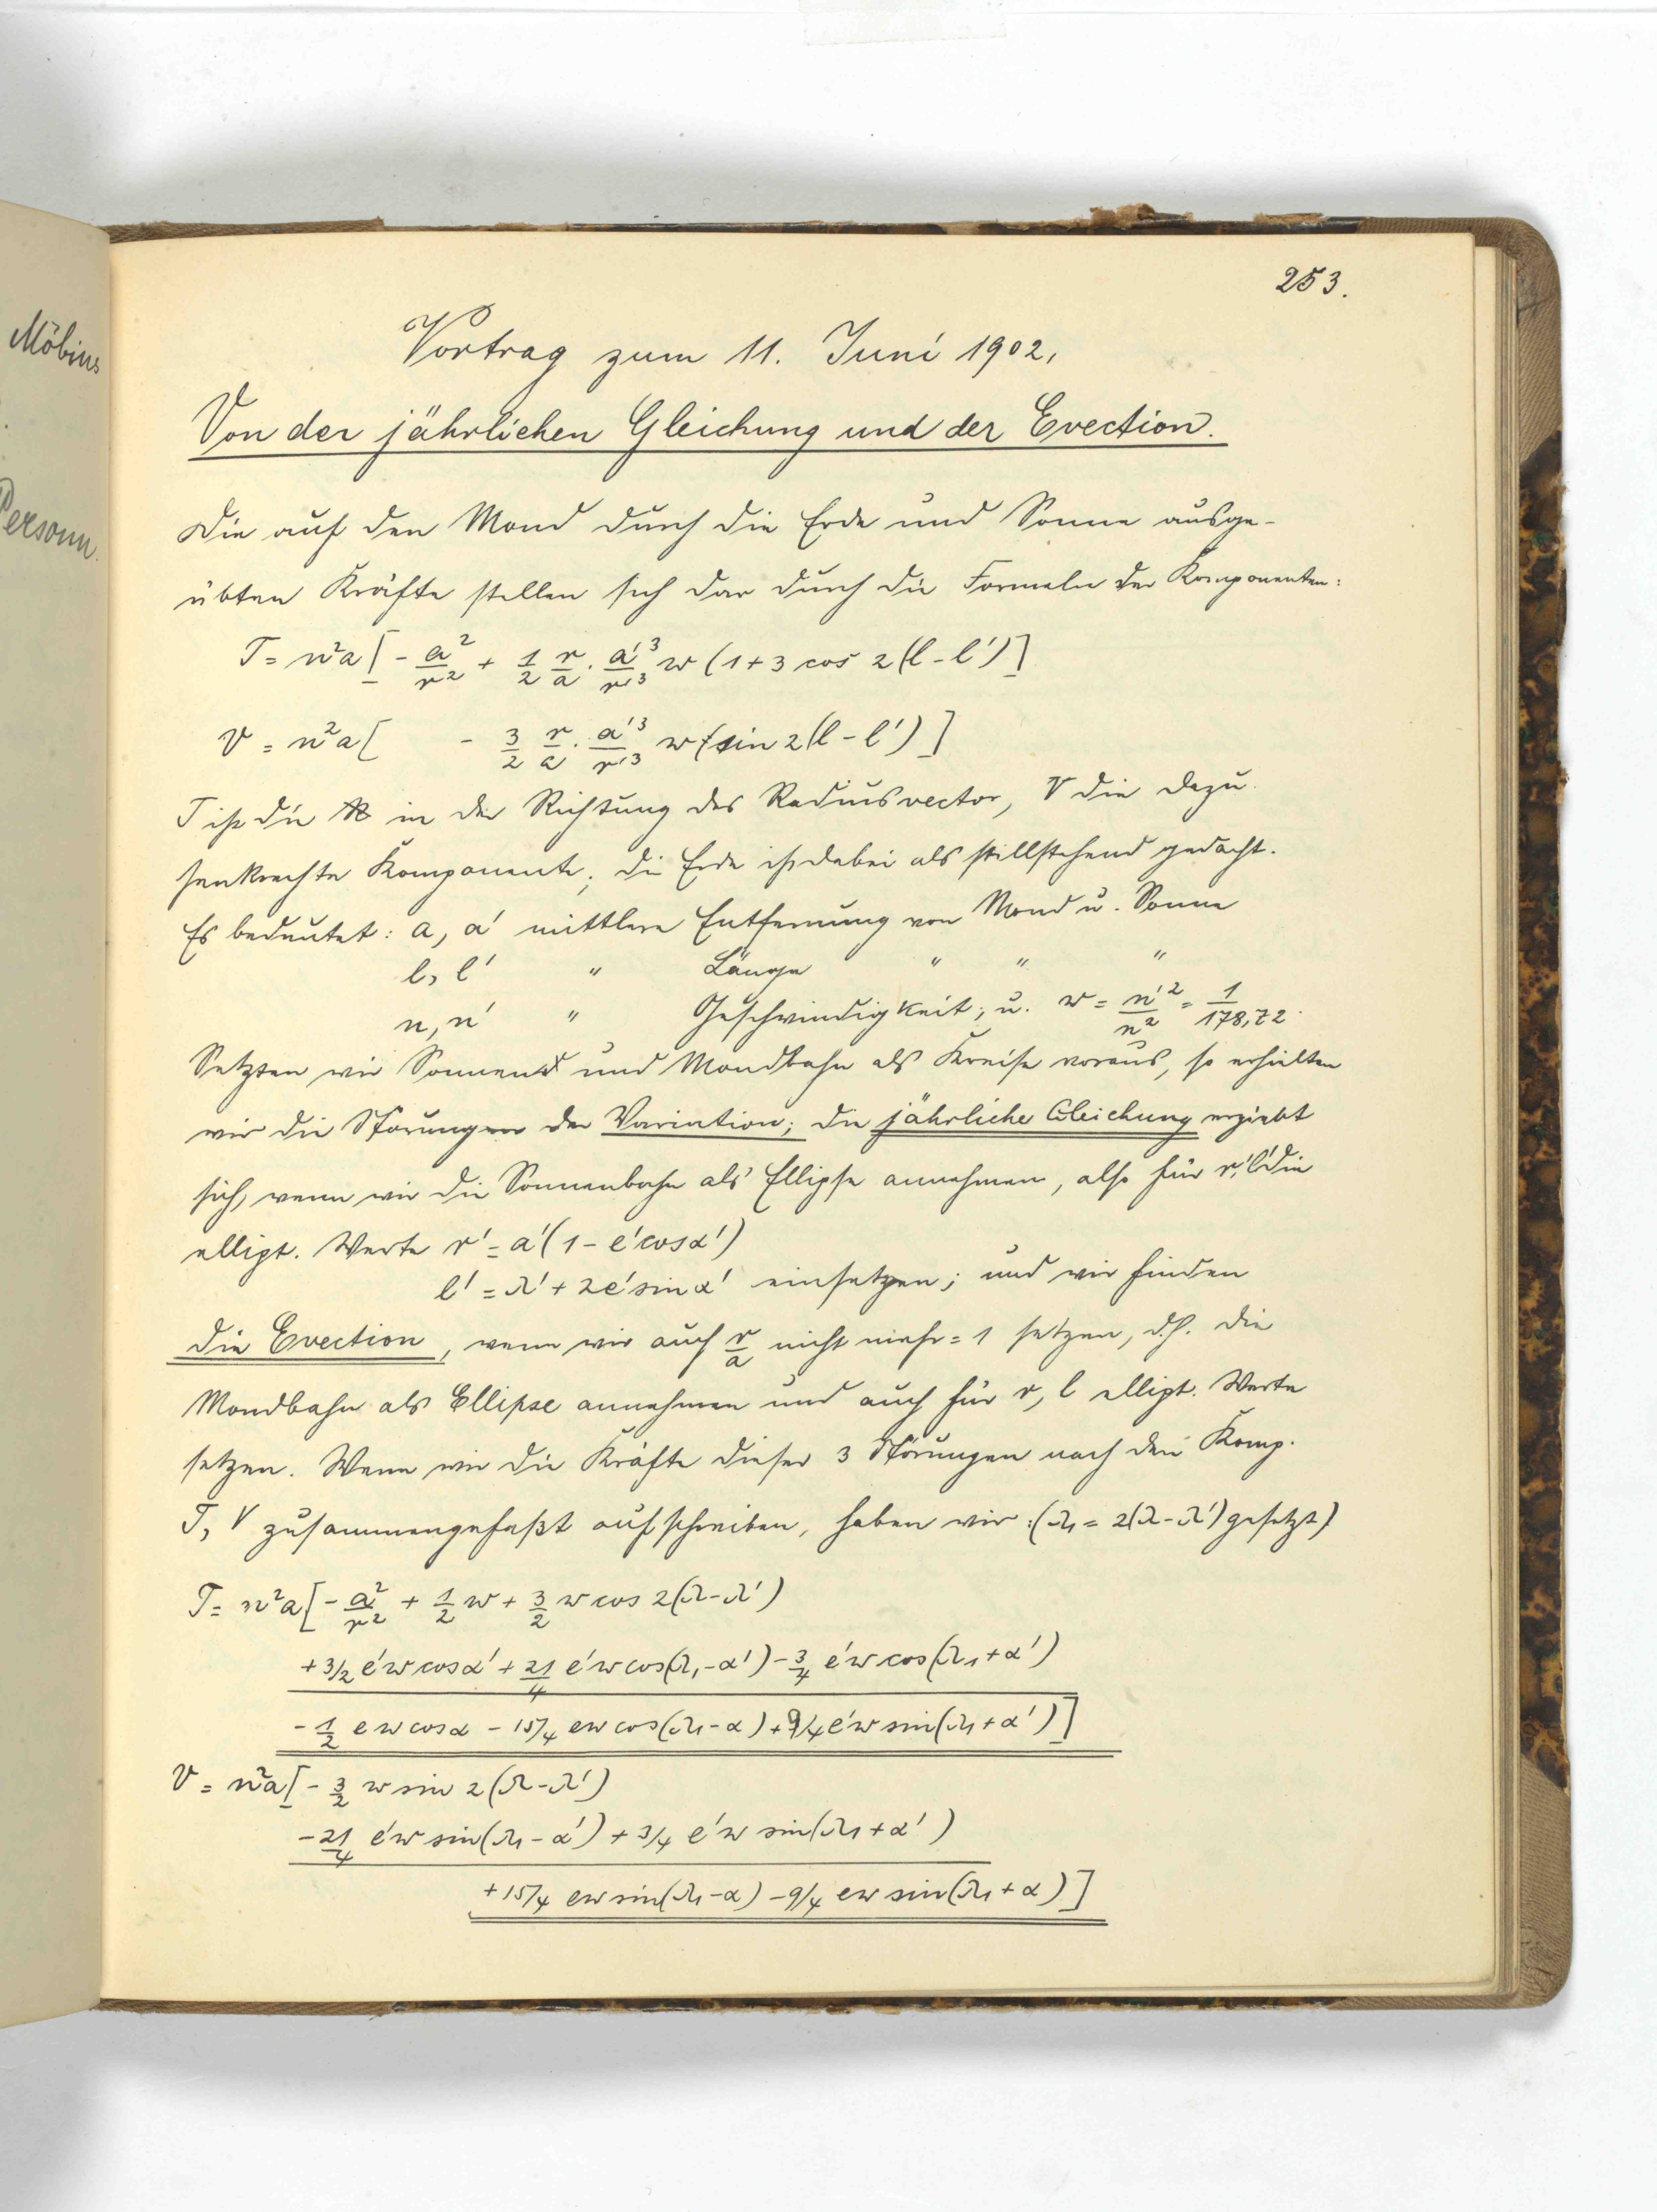 Möbius
Personn.
253.
Vortrag zum 11. Juni 1902.
Von der jährlichen Gleichung und der Evection.
Die auf den Mond durch die Erde und Sonne ausge-
übten Kräfte stellen sich dar durch die Formeln der Komponenten:
T = n²a [ - a²/r² + 1/2 r/a · a'³/r'³ w (1 + 3 cos 2(l - l') ]
V = n²a [ - 3/2 r/a · a'³/r'³ w sin 2(l - l') ]
T ist die in der Richtung des Radiusvector, V die dazu
senkrechte Komponente; die Erde ist dabei als stillstehend gedacht.
Es bedeutet: a, a' mittlere Entfernung von Mond u. Sonne
l, l' " Länge " " "
n, n' " Geschwindigkeit; u. w = n'²/n² = 1/178,72.
Setzten wir Sonnen und Mondbahn als Kreise voraus, so erhielten
wir die Störungen der Variation; die jährliche Gleichung ergiebt
sich, wenn wir die Sonnenbahn als Ellipse annehmen, also für r', l' die
ellipt. Werte r' = a'(1 - e' cos α')
l' = λ' + 2e' sin α' einsetzen; und wir finden
die Evection, wenn wir auch r/a nicht mehr = 1 setzen, d.h. die
Mondbahn als Ellipse annehmen und auch für r, l ellipt. Werte
setzen. Wenn wir die Kräfte dieser 3 Störungen nach den Komp.
T, V zusammengefaßt aufschreiben, haben wir: (λ₁ = 2(λ - λ') gesetzt)
T = n²a [ - a²/r² + 1/2 w + 3/2 w cos 2(λ - λ')
+ 3/2 e'w cos α' + 21/4 e'w cos(λ₁ - α') - 3/4 e'w cos(λ₁ + α')
- 1/2 e w cos α - 15/4 e w cos(λ₁ - α) + 9/4 e'w sin(λ₁ + α') ]
V = n²a [ - 3/2 w sin 2(λ - λ')
- 21/4 e'w sin(λ₁ - α') + 3/4 e'w sin(λ₁ + α')
+ 15/4 e w sin(λ₁ - α) - 9/4 e w sin(λ₁ + α) ]